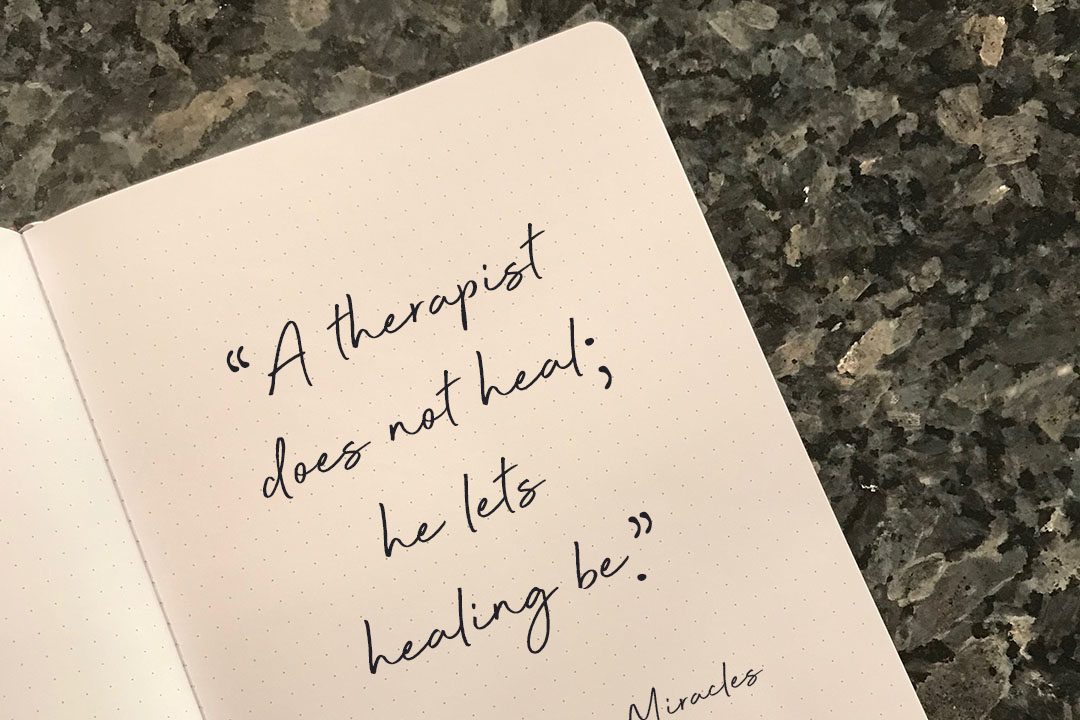 “A therapist
does not heal;
he lets
healing be.”
Miracles